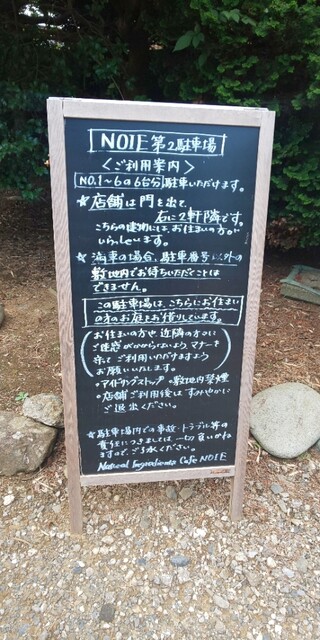 NOIE 第2駐車場
〈ご利用案内〉
NO.1〜6の6台分 駐車いただけます。
★店舗は門を出て、
右に2軒隣です。
こちらの建物には、お住まいの方が
いらっしゃいます。
★満車の場合、駐車番号以外の
敷地内でお待ちいただくことは
できません。
この駐車場は、こちらにお住まい
の方のお庭をお借りしています。
お住まいの方や近隣の方々に
ご迷惑がかからないようマナーを
守ってご利用いただけますよう
お願いいたします。
・アイドリングストップ ・敷地内禁煙
・店舗ご利用後はすみやかに
ご退出ください。
★駐車場内での事故・トラブル等の
責任につきましては一切負いかね
ますので、ご了承ください。
Natural Ingredients Cafe NOIE